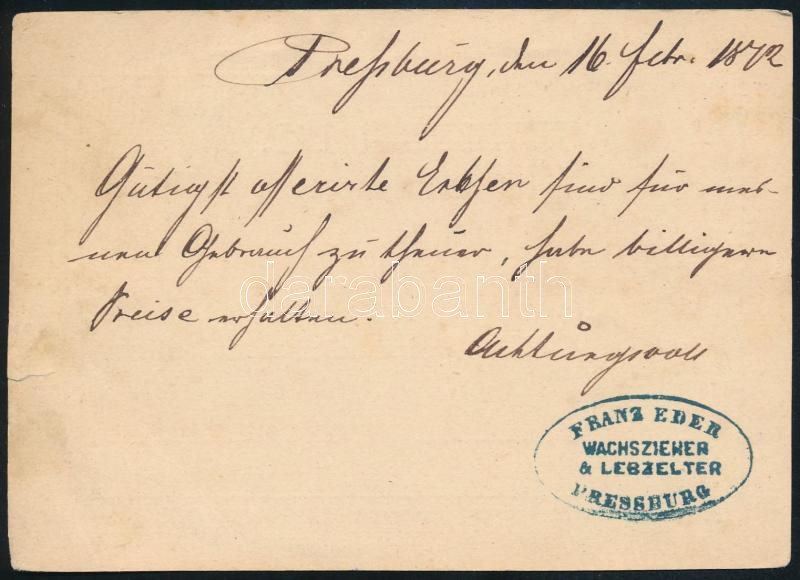 Pressburg, den 16. Febr. 1872
Gütigst offerirte Erbsen sind für mei-
nen Gebrauch zu theuer, habe billigere
Preise erhalten.
Achtungsvoll
darabanth
FRANZ EDER
WACHSZIEHER
& LEBZELTER
PRESSBURG